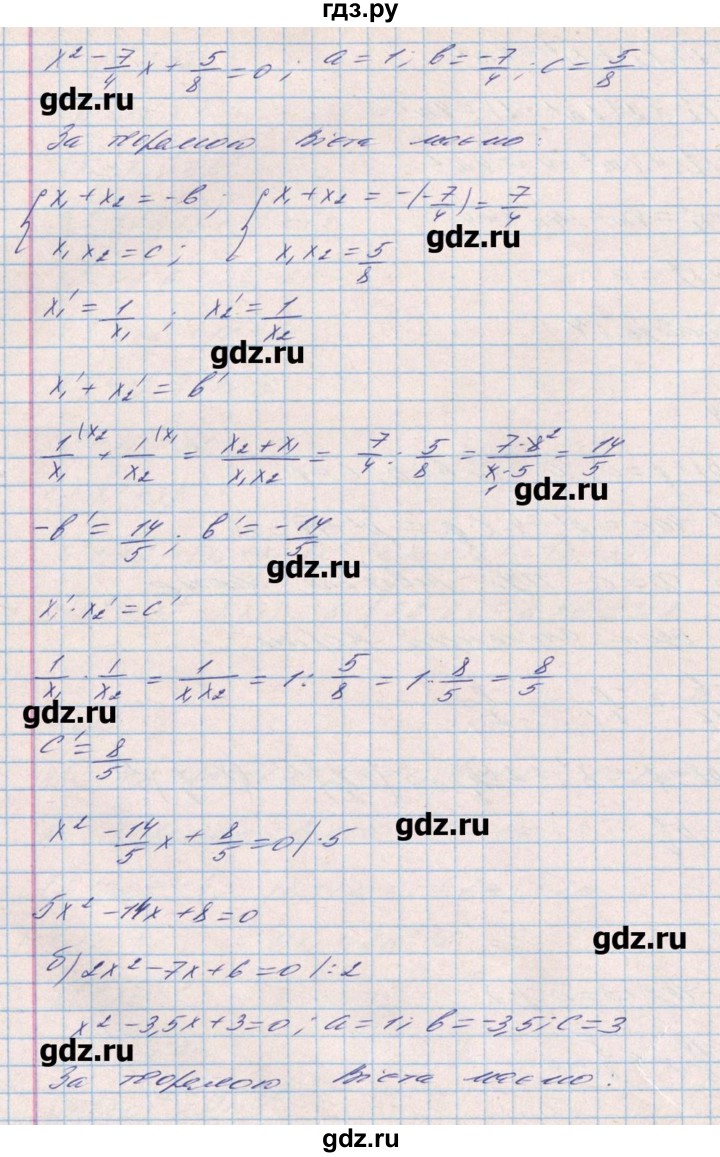 гдз.ру
x² - 7/4 x + 5/8 = 0; a = 1; b = -7/4; c = 5/8
gdz.ru
За теоремою Вієта маємо:
{ x₁ + x₂ = -b; { x₁ + x₂ = -(-7/4) = 7/4
gdz.ru
x₁ x₂ = c; x₁ x₂ = 5/8
x₁' = 1/x₁; x₂' = 1/x₂
gdz.ru
x₁' + x₂' = b'
1/x₁ (x₂ + 1/x₂ (x₁ = x₂ + x₁/x₁x₂ = 7/4 : 5/8 = 7·8²/4₁·5 = 14/5
gdz.ru
-b' = 14/5; b' = -14/5
gdz.ru
x₁' · x₂' = c'
1/x₁ · 1/x₂ = 1/x₁x₂ = 1 : 5/8 = 1 · 8/5 = 8/5
gdz.ru
c' = 8/5
gdz.ru
x² - 14/5 x + 8/5 = 0 | · 5
5x² - 14x + 8 = 0
gdz.ru
б) 2x² - 7x + 6 = 0 | : 2
x² - 3,5x + 3 = 0; a = 1; b = -3,5; c = 3
gdz.ru
За теоремою Вієта маємо:
gdz.ru